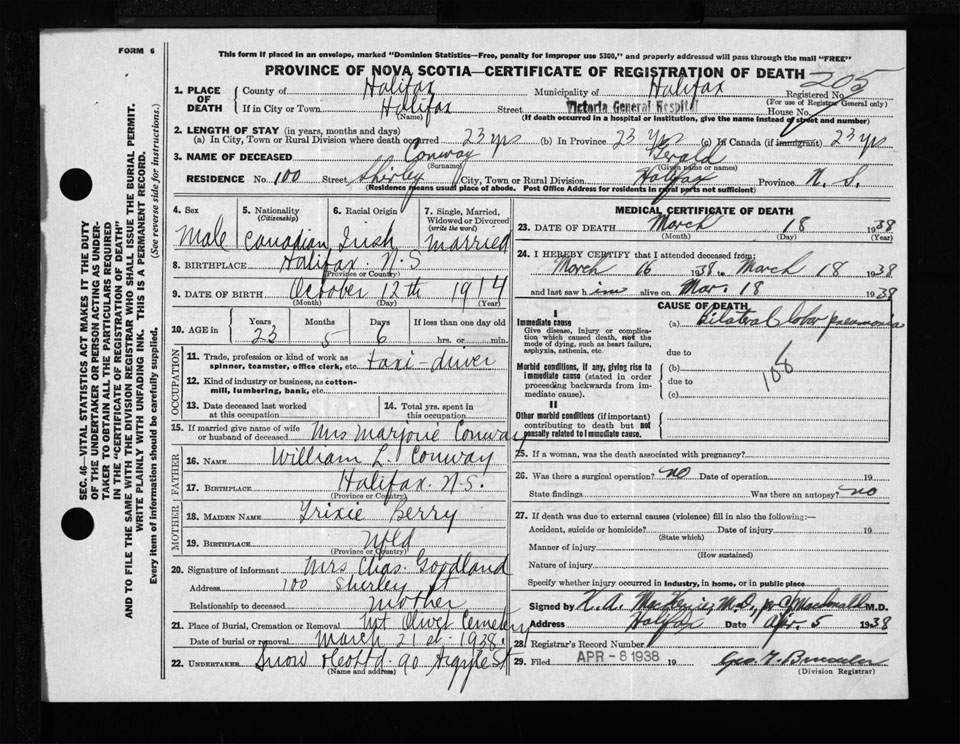 FORM 6
This form if placed in an envelope, marked "Dominion Statistics—Free, penalty for improper use $300," and properly addressed will pass through the mail "FREE"
PROVINCE OF NOVA SCOTIA—CERTIFICATE OF REGISTRATION OF DEATH
205
1. PLACE OF DEATH County of Halifax Municipality of Halifax Registered No.
(For use of Registrar General only)
If in City or Town Halifax Street Victoria General Hospital House No.
(Name) (If death occurred in a hospital or institution, give the name instead of street and number)
2. LENGTH OF STAY (in years, months and days)
(a) In City, Town or Rural Division where death occurred 23 yrs (b) In Province 23 yrs (c) In Canada (if immigrant) 23 yrs
3. NAME OF DECEASED Conway Gerald
(Surname) (Given name or names)
RESIDENCE No. 100 Street Shirley City, Town or Rural Division Halifax Province N.S.
(Residence means usual place of abode. Post Office Address for residents in rural parts not sufficient)
4. Sex 5. Nationality (Citizenship) 6. Racial Origin 7. Single, Married, Widowed or Divorced (write the word)
Male Canadian Irish married
8. BIRTHPLACE Halifax N.S
(Province or Country)
9. DATE OF BIRTH October 12th 1914
(Month) (Day) (Year)
10. AGE in Years Months Days If less than one day old
23 5 6 hrs. or min.
OCCUPATION
11. Trade, profession or kind of work as spinner, teamster, office clerk, etc. taxi-driver
12. Kind of industry or business, as cotton-mill, lumbering, bank, etc.
13. Date deceased last worked at this occupation
14. Total yrs. spent in this occupation
15. If married give name of wife or husband of deceased Mrs Marjorie Conway
FATHER
16. NAME William L. Conway
17. BIRTHPLACE Halifax N.S.
(Province or Country)
MOTHER
18. MAIDEN NAME Trixie Berry
19. BIRTHPLACE Nfld
(Province or Country)
20. Signature of informant Mrs Chas. Goodland
Address 100 Shirley St
Relationship to deceased mother
21. Place of Burial, Cremation or Removal Mt Olivet Cemetery
Date of burial or removal March 21st 1938.
22. UNDERTAKER Snow & Co Ltd 90 Argyle St
(Name and address)
MEDICAL CERTIFICATE OF DEATH
23. DATE OF DEATH March 18 1938
(Month) (Day) (Year)
24. I HEREBY CERTIFY that I attended deceased from:
March 16 1938 to March 18 1938
and last saw him alive on Mar. 18 1938
CAUSE OF DEATH
I
Immediate cause
Give disease, injury or complication which caused death, not the mode of dying, such as heart failure, asphyxia, asthenia, etc.
(a) Bilateral lobar pneumonia
due to
Morbid conditions, if any, giving rise to immediate cause (stated in order proceeding backwards from immediate cause).
(b)
due to
(c)
108
II
Other morbid conditions (if important) contributing to death but not causally related to immediate cause.
25. If a woman, was the death associated with pregnancy?
26. Was there a surgical operation? no Date of operation 19
State findings Was there an autopsy? no
27. If death was due to external causes (violence) fill in also the following:—
Accident, suicide or homicide? Date of injury 19
(State which)
Manner of injury
(How sustained)
Nature of injury
Specify whether injury occurred in industry, in home, or in public place
Signed by K.A. MacKenzie, M.D., M.D.
Address Halifax Date Apr. 5 1938
28. Registrar's Record Number
29. Filed APR - 8 1938 19 Geo.
(Division Registrar)
SEC. 46—VITAL STATISTICS ACT MAKES IT THE DUTY
OF THE UNDERTAKER OR PERSON ACTING AS UNDER-
TAKER TO OBTAIN ALL THE PARTICULARS REQUIRED
IN THE "CERTIFICATE OF REGISTRATION OF DEATH"
AND TO FILE THE SAME WITH THE DIVISION REGISTRAR WHO SHALL ISSUE THE BURIAL PERMIT.
WRITE PLAINLY WITH UNFADING INK. THIS IS A PERMANENT RECORD.
Every item of information should be carefully supplied. (See reverse side for instructions.)